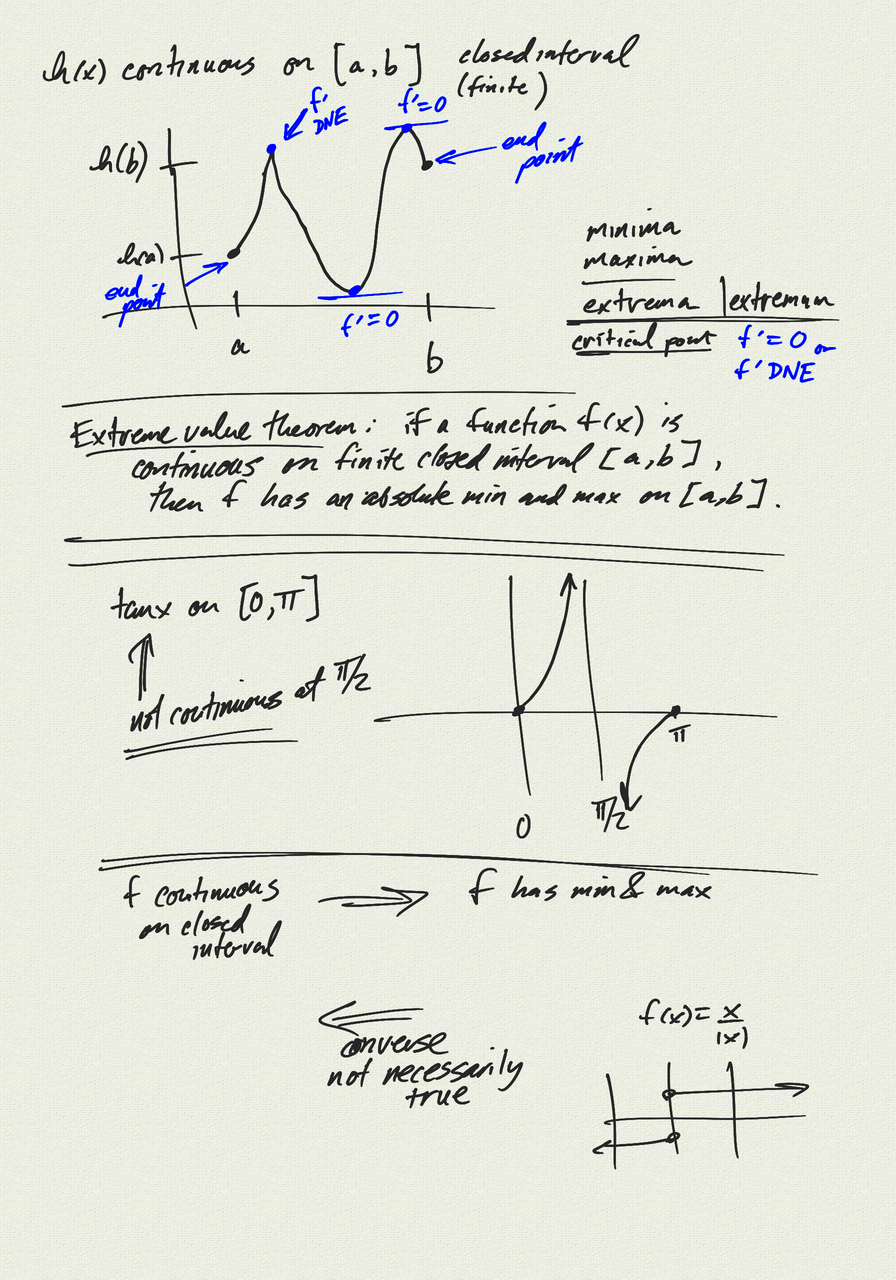 h(x) continuous on [a,b] closed interval
(finite)
f'
DNE
f'=0
h(b)
end
point
h(a)
end
point
f'=0
a
b
minima
maxima
extrema | extremum
critical point f'=0 or
f' DNE
Extreme value theorem: if a function f(x) is
continuous on finite closed interval [a,b],
then f has an absolute min and max on [a,b].
tanx on [0,π]
not continuous at π/2
π
0
π/2
f continuous
on closed
interval
⇒
f has min & max
⇐
converse
not necessarily
true
f(x)= x/|x|